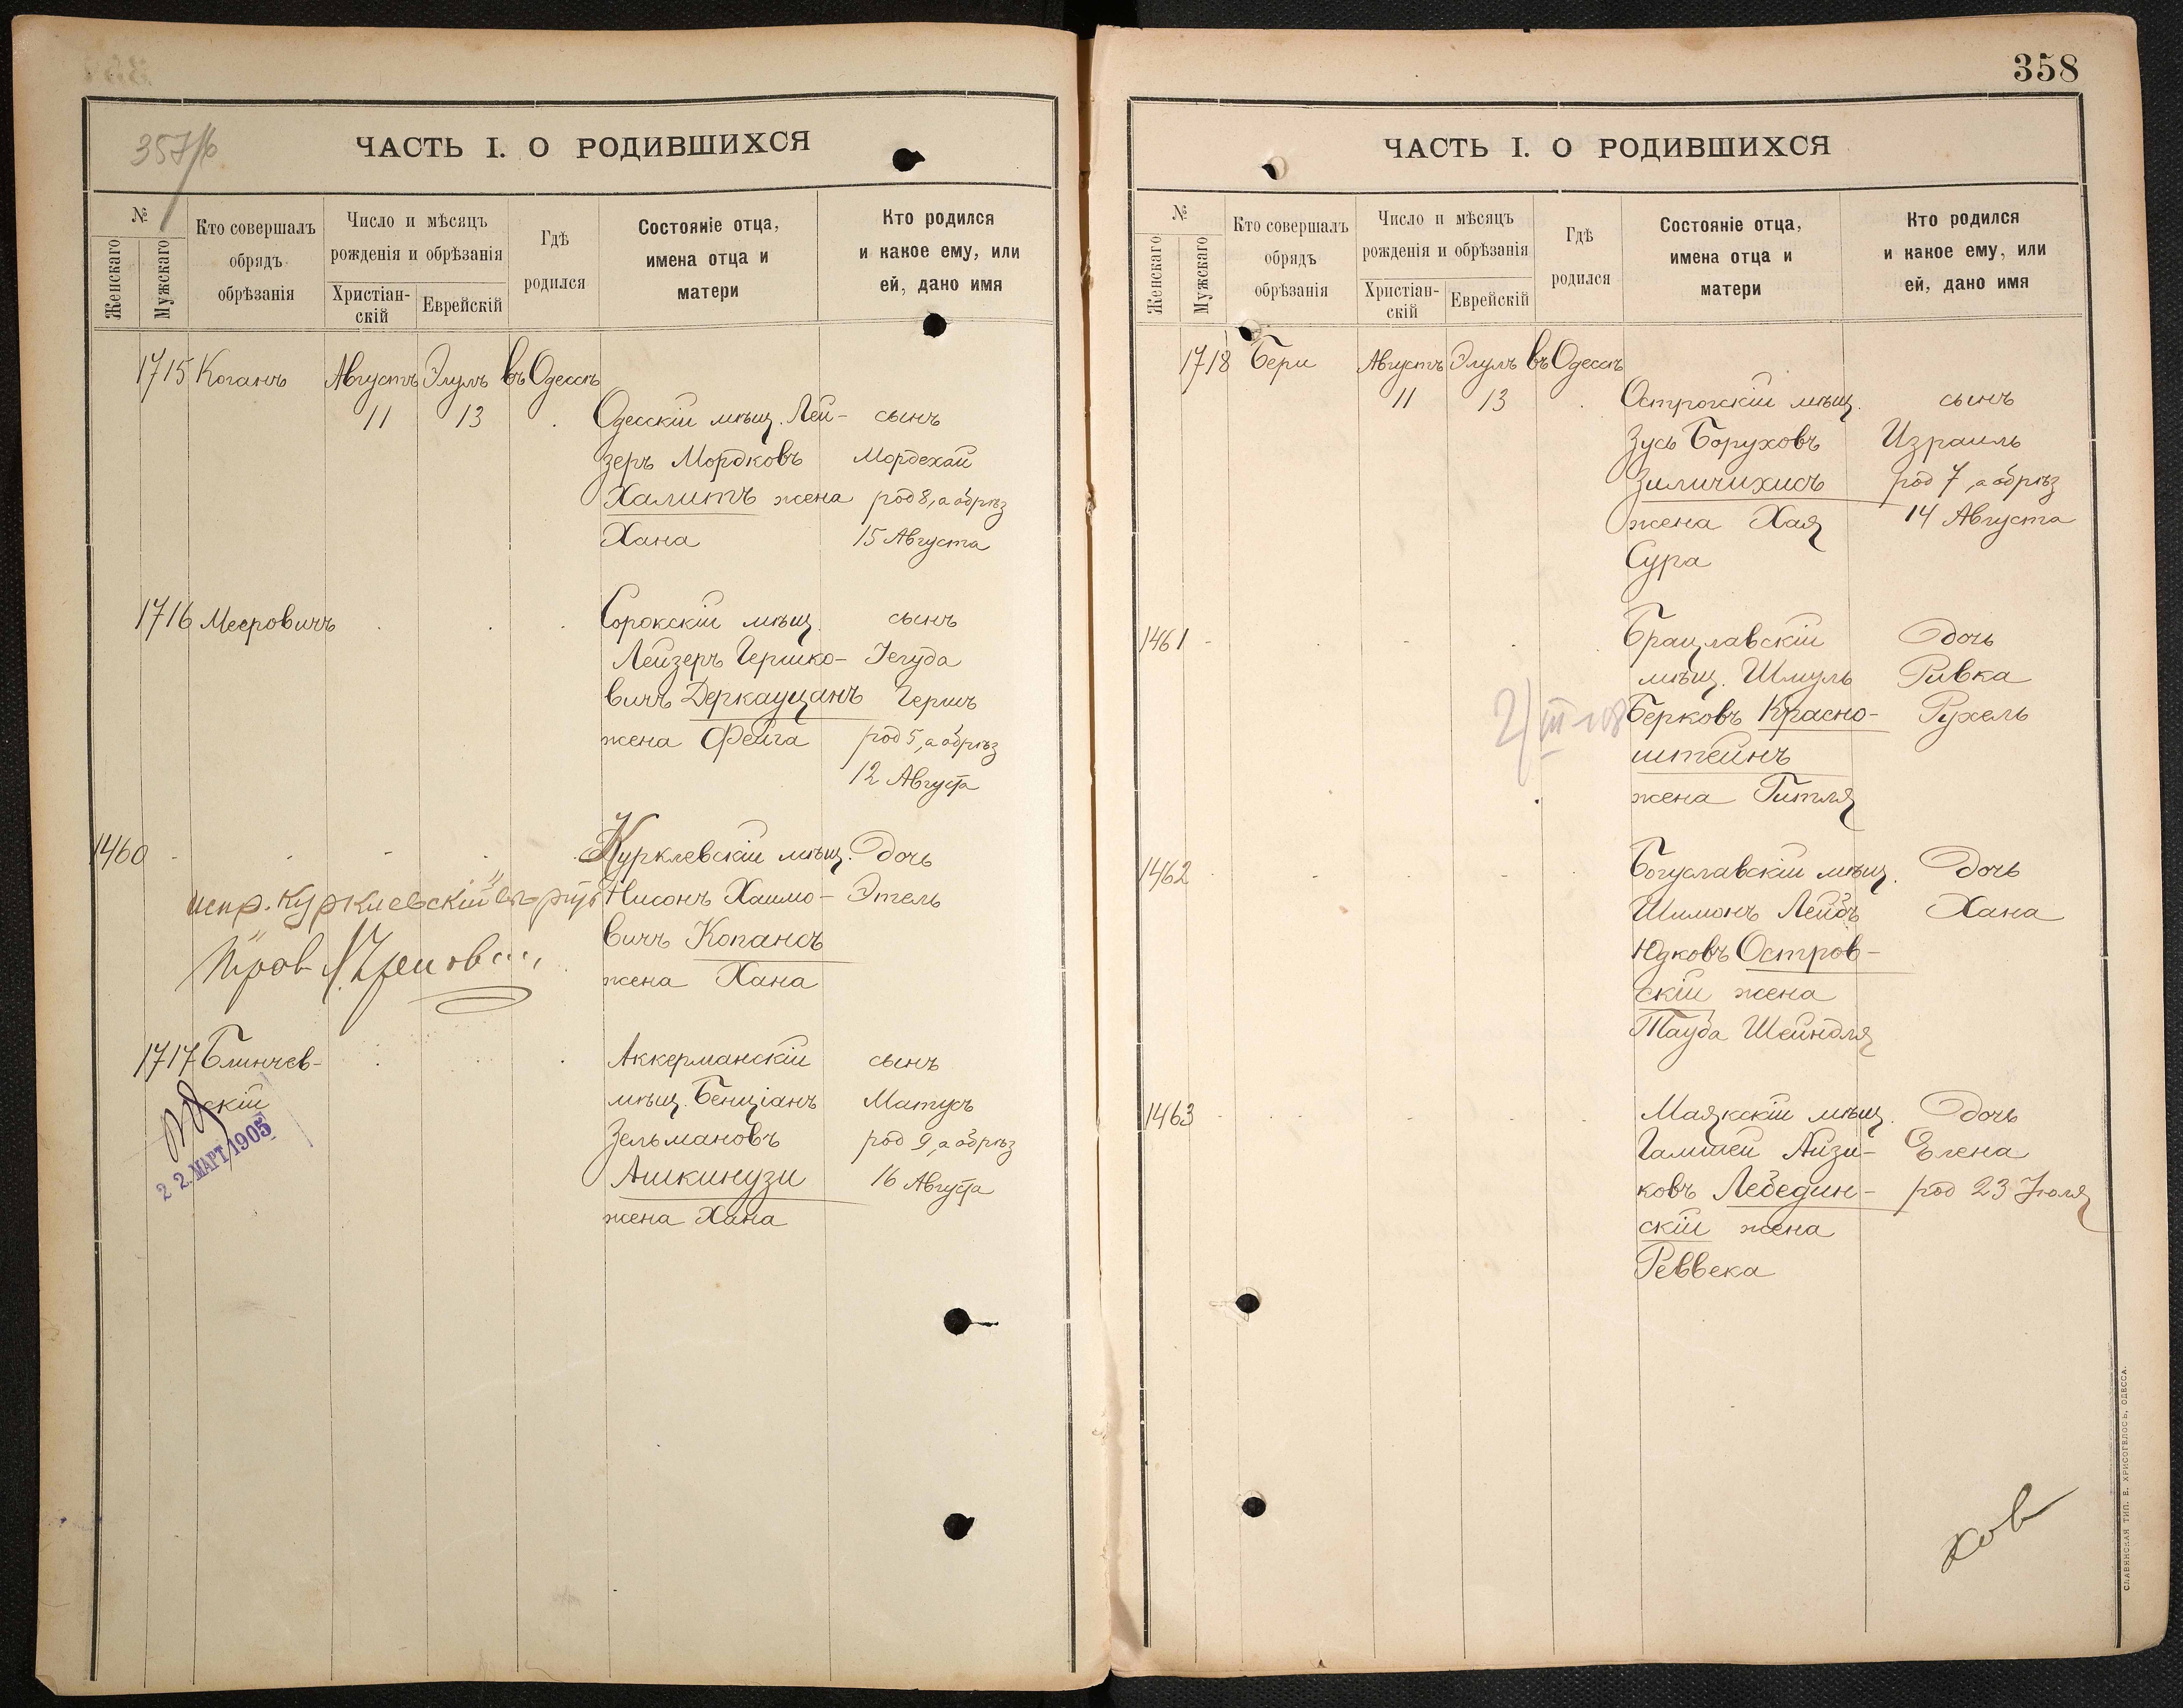 357/б
ЧАСТЬ I. О РОДИВШИХСЯ
№
Женскаго
Мужскаго
Кто совершалъ
обрядъ
обрѣзанія
Число и мѣсяцъ
рожденія и обрѣзанія
Христіан-
скій
Еврейскій
Гдѣ
родился
Состояніе отца,
имена отца и
матери
Кто родился
и какое ему, или
ей, дано имя
1715 Коганъ Августъ Элулъ въ Одессѣ
11 13 Одесскій мѣщ. Лей- сынъ
зеръ Мордковъ Мордехай
Халитъ жена род 8, а обрѣз
Хана 15 Августа
1716 Мееровичъ Сорокскій мѣщ. сынъ
Лейзеръ Гершко- Іегуда
вичъ Деркауцанъ Гершъ
жена Фейга род 5, а обрѣз
12 Августа
1460 Курклевскій мѣщ. дочь
испр. "Курклевскій" Нисонъ Хаимо- Этель
вичъ Копансъ
жена Хана
1717 Блинчев- Аккерманскій сынъ
скій мѣщ. Бенціанъ Матусъ
22. МАРТ 1905
Зельмановъ род 9, а обрѣз
Ашкинузи 16 Августа
жена Хана
358
ЧАСТЬ I. О РОДИВШИХСЯ
№
Женскаго
Мужскаго
Кто совершалъ
обрядъ
обрѣзанія
Число и мѣсяцъ
рожденія и обрѣзанія
Христіан-
скій
Еврейскій
Гдѣ
родился
Состояніе отца,
имена отца и
матери
Кто родился
и какое ему, или
ей, дано имя
1718 Бери Августъ Элулъ въ Одессѣ
11 13 Острогскій мѣщ. сынъ
Зусь Боруховъ Израиль
Зиличихисъ род 7, а обрѣз
жена Хая 14 Августа
Сура
1461 Брацлавскій дочь
мѣщ. Шмуль Ривка
Берковъ Красно- Рухель
штейнъ
жена Гитля
1462 Богуславскій мѣщ. дочь
Шимонъ Лейбъ Хана
Юдковъ Остров-
скій жена
Тауба Шейндля
1463 Маякскій мѣщ. дочь
Гамшей Айзи- Елена
ковъ Лебедин- род 23 Іюля
скій жена
Реввека
ков
СЛАВЯНСКАЯ ТИП. Е. ХРИСОГЕЛОСЪ, ОДЕССА.